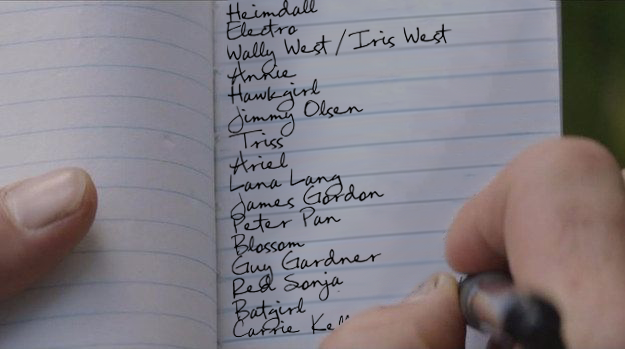 Heimdall
Electro
Wally West / Iris West
Annie
Hawkgirl
Jimmy Olsen
Triss
Ariel
Lana Lang
James Gordon
Peter Pan
Blossom
Guy Gardner
Red Sonja
Batgirl
Carrie Kell